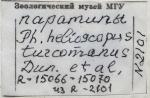 Зоологический музей МГУ
паратипы
Ph. helioscopus
turcomanus
Dun. et al,
R-15066-15070
из R-2101
N 2101